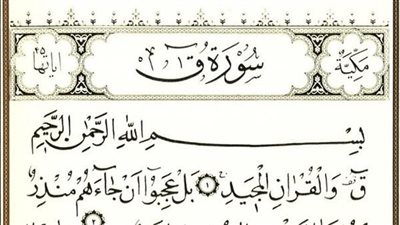 مَكِّيَّة سُورَةُ ق اياتها ٤٥
بِسْمِ اللهِ الرَّحْمٰنِ الرَّحِيمِ
قٓ وَالْقُرْاٰنِ الْمَجِيدِ ١ بَلْ عَجِبُٓوا اَنْ جَٓاءَهُمْ مُنْذِرٌ